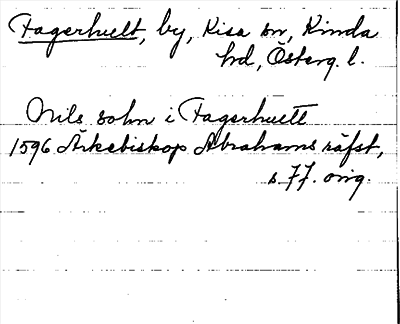 Fagerhult, by, Kisa sn, Kinda
hd, Österg. l.
Nils sohn i Fagerhuett
1596 Ärkebiskop Abrahams räfst,
s. 77. orig.